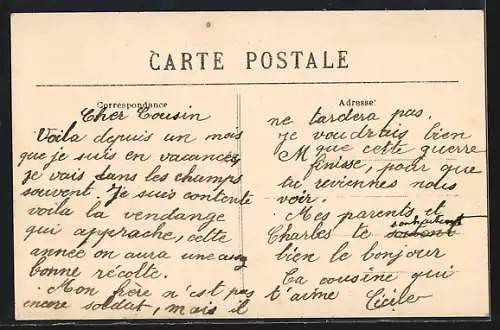 CARTE POSTALE
Correspondance
Cher Cousin
Voila depuis un mois
que je suis en vacances,
je vais dans les champs
souvent. Je suis contente
voila la vendange
qui approche, cette
année on aura une
bonne récolte.
Mon frère n'est pas
encore soldat, mais il
Adresse
ne tardera pas.
je voudrais bien
M que cette guerre
finisse, pour que
tu reviennes nous
voir.
Mes parents et
Charles te souhaitent
bien le bonjour
Ta cousine qui
t'aime Cécile